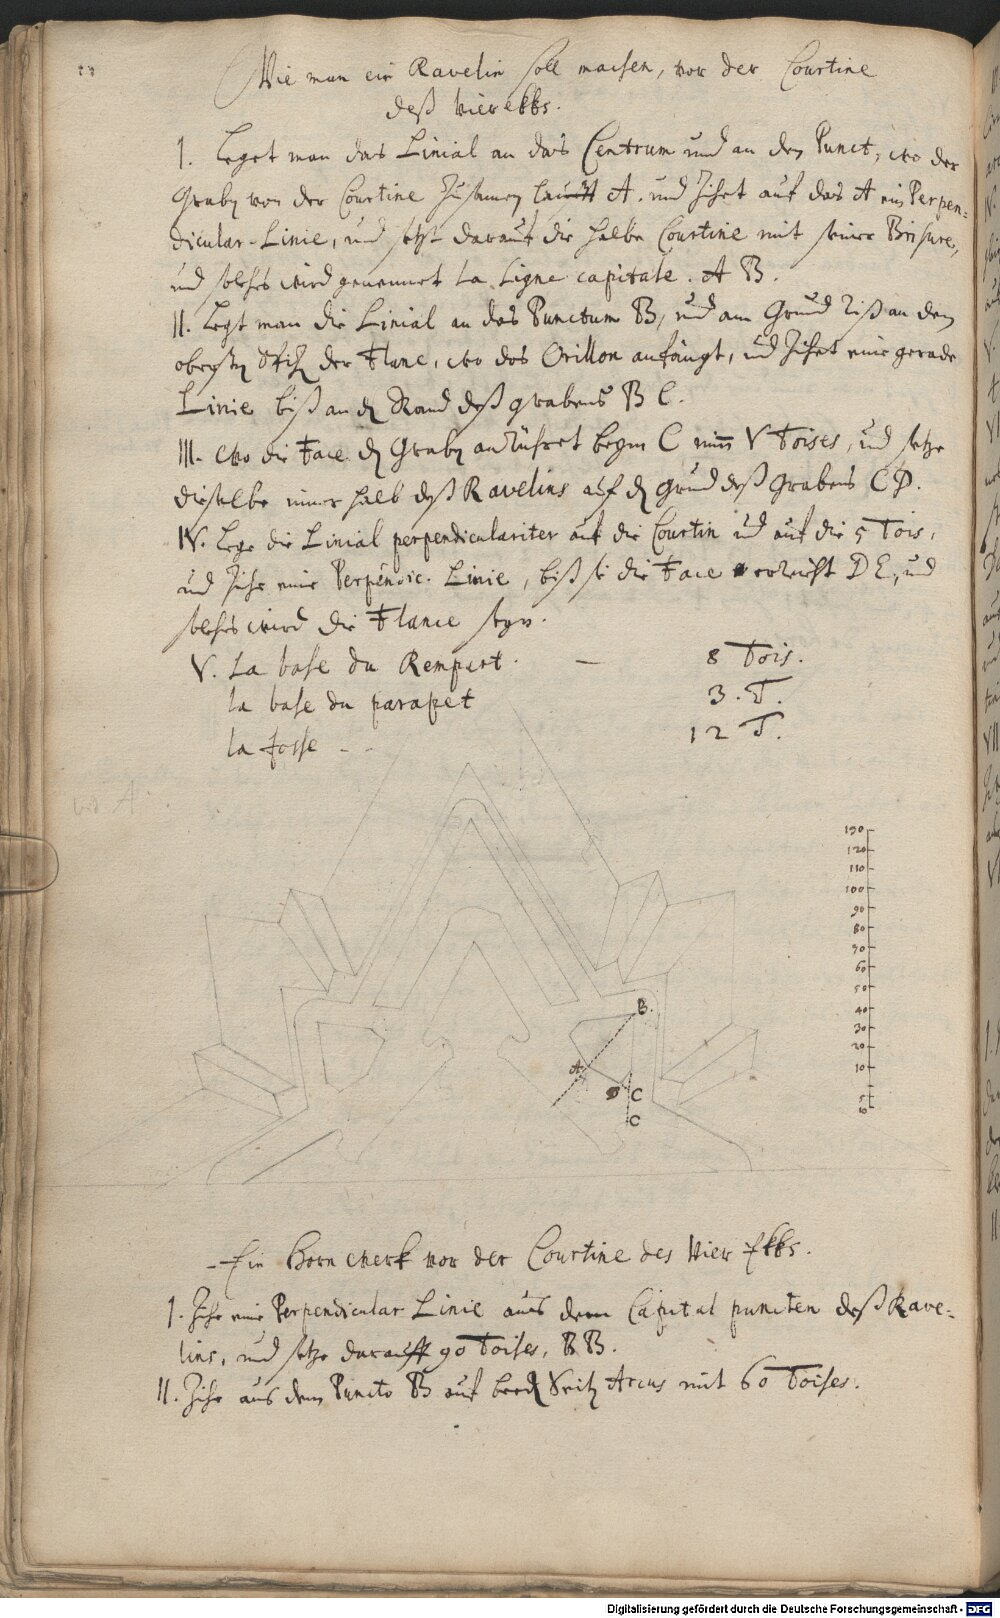 Wie man ein Ravelin soll machen, vor der Courtine
deß vierekks.
I. Leget man das Linial an das Centrum und an den Punct, wo der
Graben von der Courtine A. und Zihet auf das A ein Perpen=
dicular-Linie, und setzt darauf die halbe Courtine mit seiner Brisure,
und solches wird genennet La Ligne capitale. A B.
II. Legt man die Linial an das Punctum B, und am Grund Riß an dem
obersten der Flanc, wo das Orillon anfängt, und Zihet eine gerade
Linie biß an den Rand deß grabens B C.
III. Wo die Face den Graben anrühret beym C nim V Toises, und setze
dieselbe inner halb deß Ravelins auf den grund deß grabens C D.
IV. Lege die Linial perpendiculariter auf die Courtin und auf die 5 Tois,
und Zihe eine Perpendic. Linie, biß sie die Face erreicht D E, und
solches wird die Flance seyn.
V. La base du Rempart. — 8 Tois.
la base du parapet 3. T.
la fosse - - 12 T.
130
120
110
100
90
80
70
60
50
40
30
20
10
5
B.
A
D C
C
Ein Hornwerk vor der Courtine des Vier Ekks.
I. Zihe eine Perpendicular Linie aus dem Capital puncten deß Rave-
lins, und setze darauff 90 Toises, B B.
II. Zihe aus dem Puncto B auf beede Seiten Arcus mit 60 Toises.
Digitalisierung gefördert durch die Deutsche Forschungsgemeinschaft - DFG